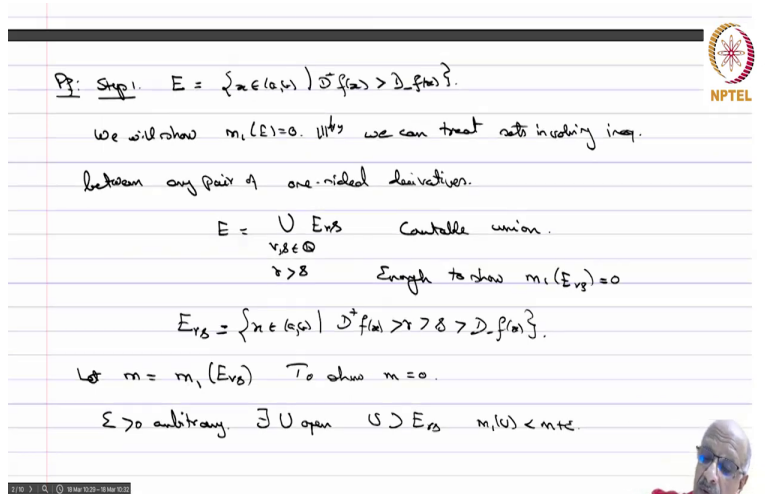 Pf: Step 1. E = {x ∈ (a,b) | D⁺f(x) > D_f(x)}.
NPTEL
We will show m₁(E) = 0. |||ly we can treat sets involving ineq.
between any pair of one-sided derivatives.
E = ∪ E_rs Countable union.
r,s ∈ ℚ
r > s Enough to show m₁(E_rs) = 0
E_rs = {x ∈ (a,b) | D⁺f(x) > r > s > D_f(x)}.
Let m = m₁(E_rs) To show m = 0.
ε > 0 arbitrary. ∃ U open U ⊃ E_rs m₁(U) < m + ε.
2/10 18 Mar 10:29 – 18 Mar 10:32